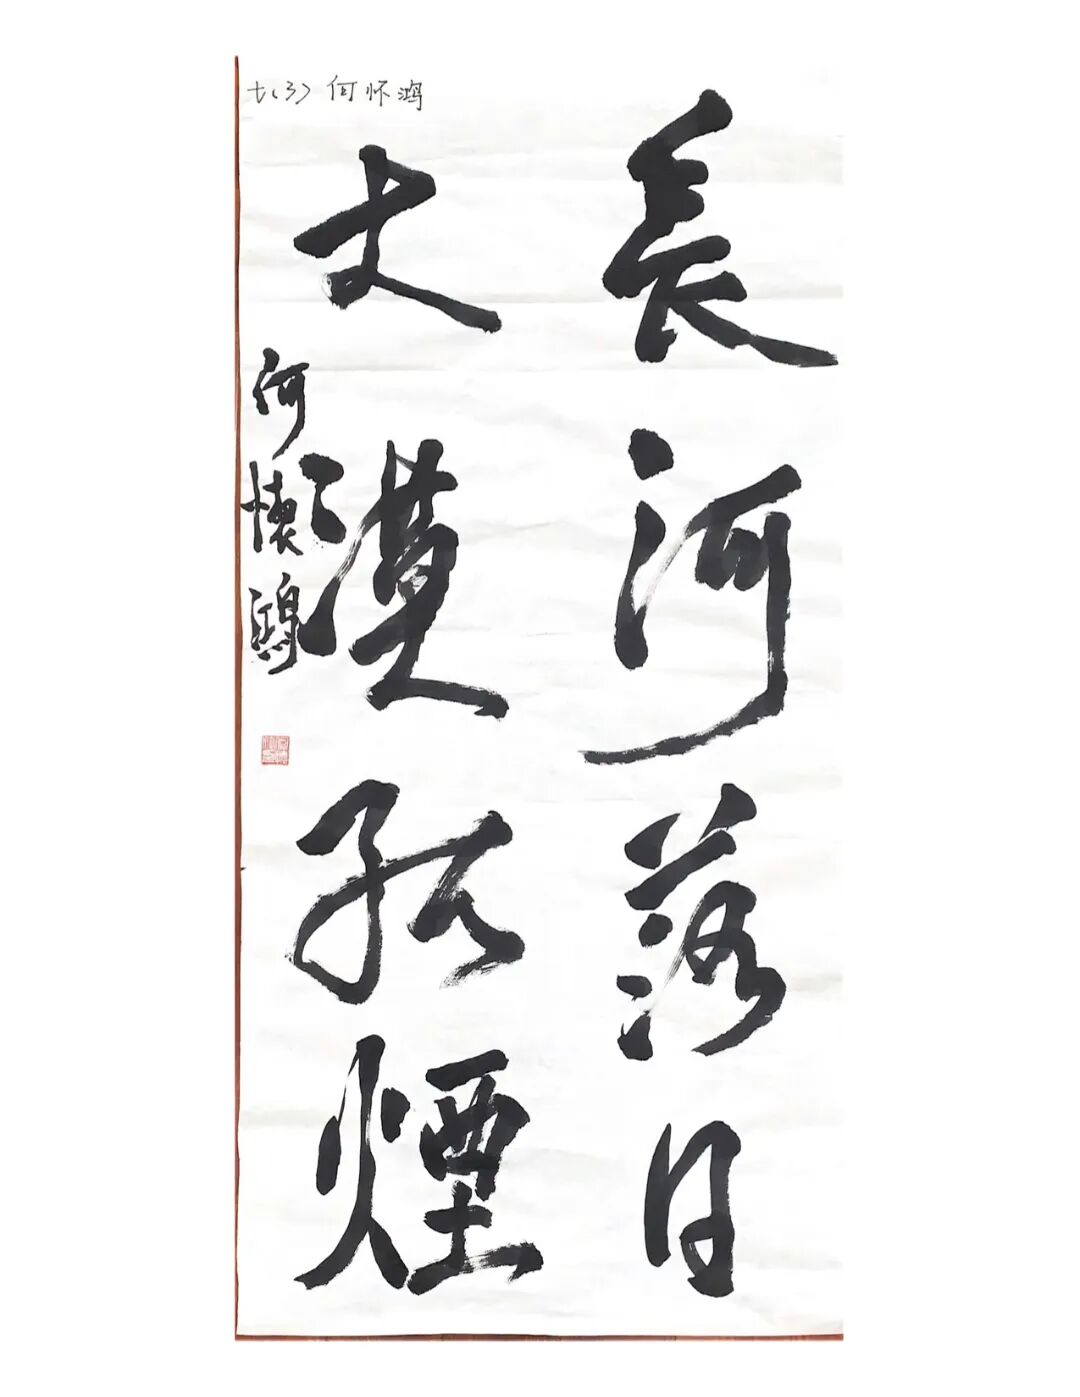 七(3) 何怀鸿
長河落日
大漠孤煙
何懷鴻